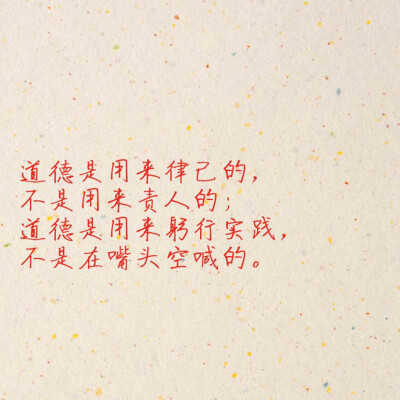 道德是用来律己的，
不是用来责人的；
道德是用来躬行实践，
不是在嘴头空喊的。